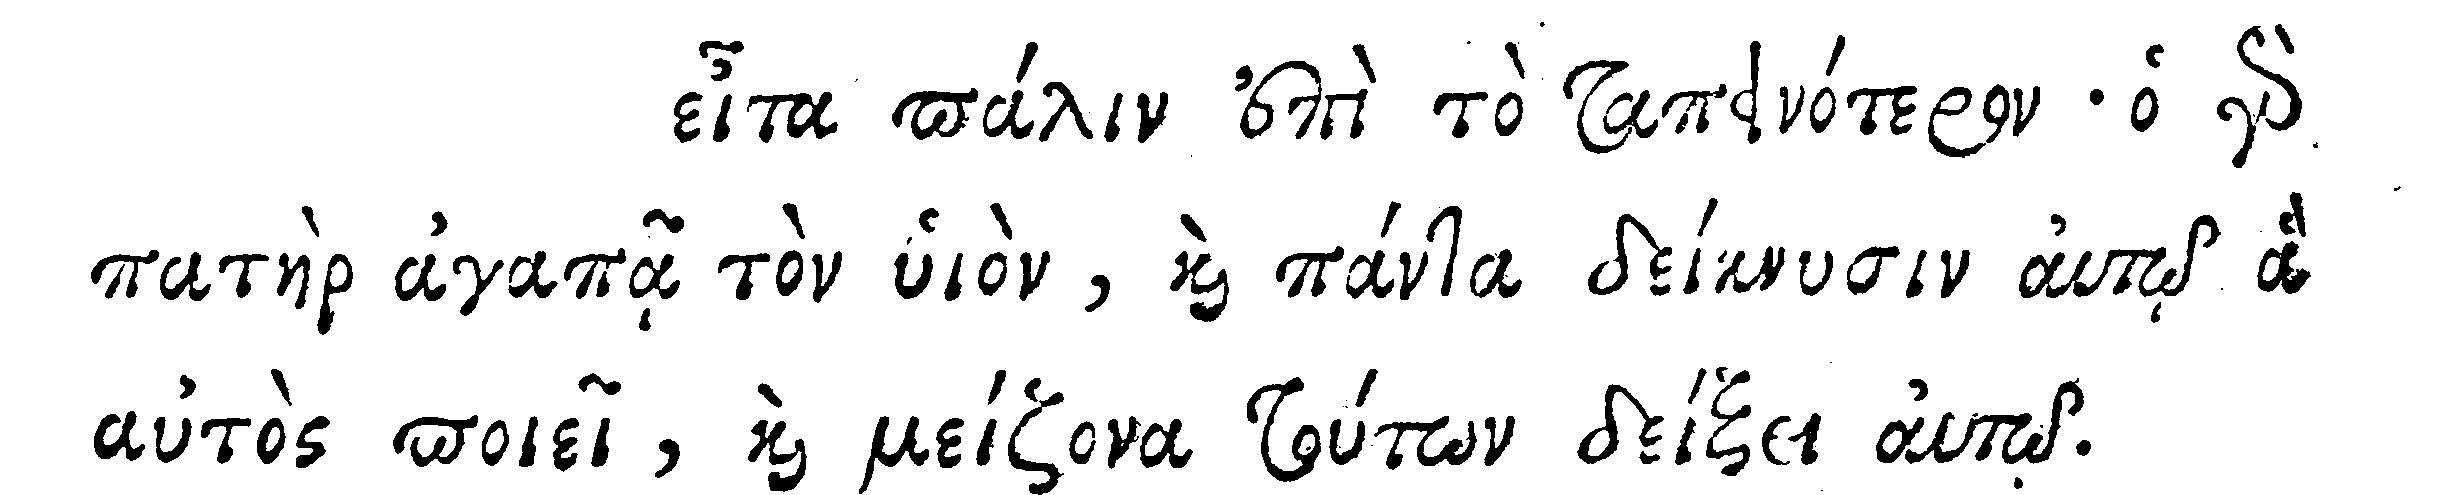 εἶτα πάλιν ἐπὶ τὸ ταπεινότερον · ὁ γὸ
πατὴρ ἀγαπᾷ τὸν ὑιὸν, ϗ̀ πάντα δείκνυσιν ἀυτῷ ἃ
αὐτὸς ποιεῖ, ϗ̀ μείζονα τούτων δείξει ἀυτῷ.